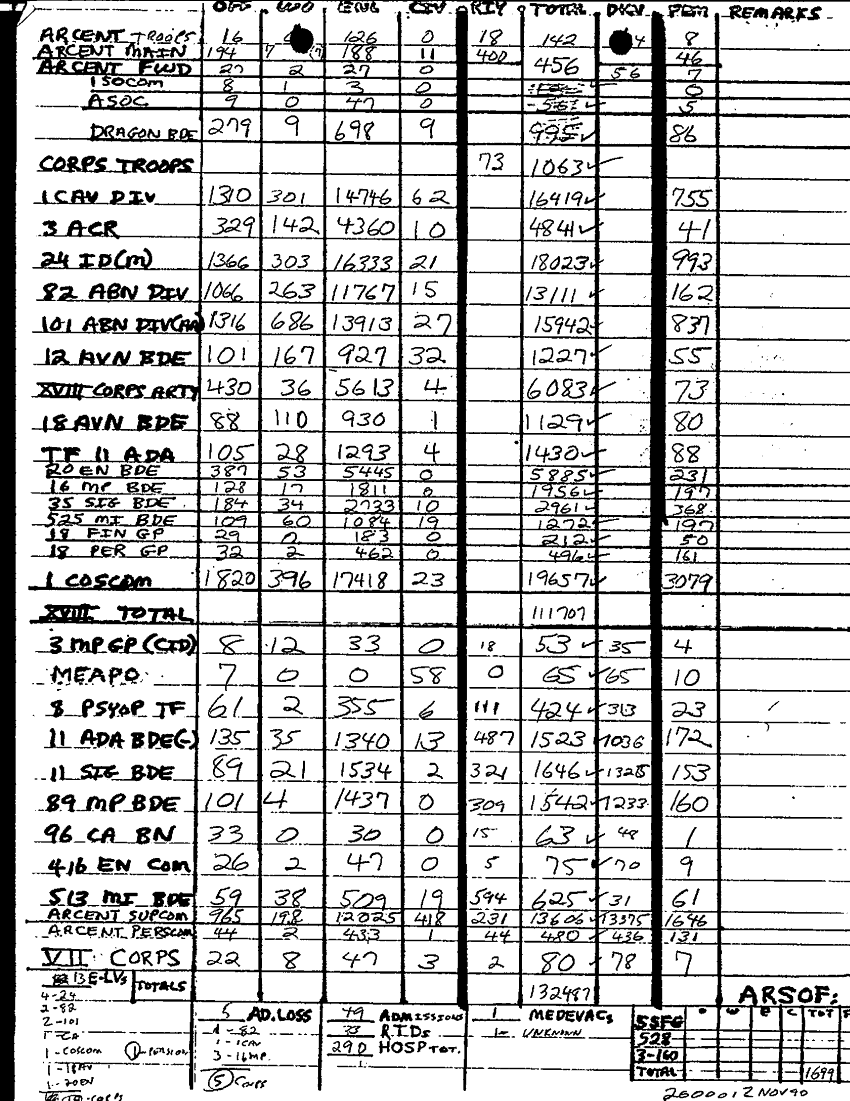 OFF WO ENL CIV RIY TOTAL DKV FEM REMARKS
ARCENT TROOPS 16 126 0 18 142 4 8
ARCENT MAIN 194 7 188 11 400 46
ARCENT FWD 27 2 27 0 456 56 7
ISOCOM 8 1 3 0 0
ASOC 9 0 47 0 5
DRAGON BDE 279 9 698 9 995✓ 86
CORPS TROOPS 73 1063✓
1 CAV DIV 1310 301 14746 62 16419✓ 755
3 ACR 329 142 4360 10 4841✓ 41
24 ID(M) 1366 303 16333 21 18023✓ 993
82 ABN DIV 1066 263 11767 15 13111✓ 162
101 ABN DIV(AA) 1316 686 13913 27 15942✓ 837
12 AVN BDE 101 167 927 32 1227✓ 55
XVIII CORPS ARTY 430 36 5613 4 6083✓ 73
18 AVN BDE 88 110 930 1 1129✓ 80
TF 11 ADA 105 28 1293 4 1430✓ 88
20 EN BDE 387 53 5445 0 5885✓ 231
16 MP BDE 128 17 1811 0 1956✓ 197
35 SIG BDE 184 34 2733 10 2961✓ 368
525 MI BDE 109 60 1084 19 1272✓ 197
18 FIN GP 29 0 183 0 212✓ 50
18 PER GP 32 2 462 0 496✓ 161
1 COSCOM 1820 396 17418 23 19657✓ 3079
XVIII TOTAL 111707
3 MP GP (CID) 8 12 33 0 18 53✓ 35 4
MEAPO 7 0 0 58 0 65✓ 65 10
8 PSYOP TF 61 2 355 6 111 424✓ 313 23
11 ADA BDE(-) 135 35 1340 13 487 1523✓ 1036 172
11 SIG BDE 89 21 1534 2 321 1646✓ 1325 153
89 MP BDE 101 4 1437 0 309 1542✓ 1233 160
96 CA BN 33 0 30 0 15 63✓ 48 1
416 EN COM 26 2 47 0 5 75✓ 70 9
513 MI BDE 59 38 509 19 594 625✓ 31 61
ARCENT SUPCOM 965 198 12025 418 231 13606✓ 13375 1646
ARCENT PERSCOM 44 2 433 1 44 480✓ 436 131
VII CORPS 22 8 47 3 2 80✓ 78 7
13 E-LVs TOTALS 132487 ARSOF:
4-24 5 AD.LOSS 49 ADMISSIONS 1 MEDEVACs O W E C TOT F
2-82 1-82 33 RTDs 1- UNKNOWN 5SFG
2-101 1-1CAV 290 HOSP TOT. 528
1-CA 3-16MP 3-160
1-COSCOM TOTAL 1699
1-18AV
1-20EN 5 CORPS
260001Z NOV 90